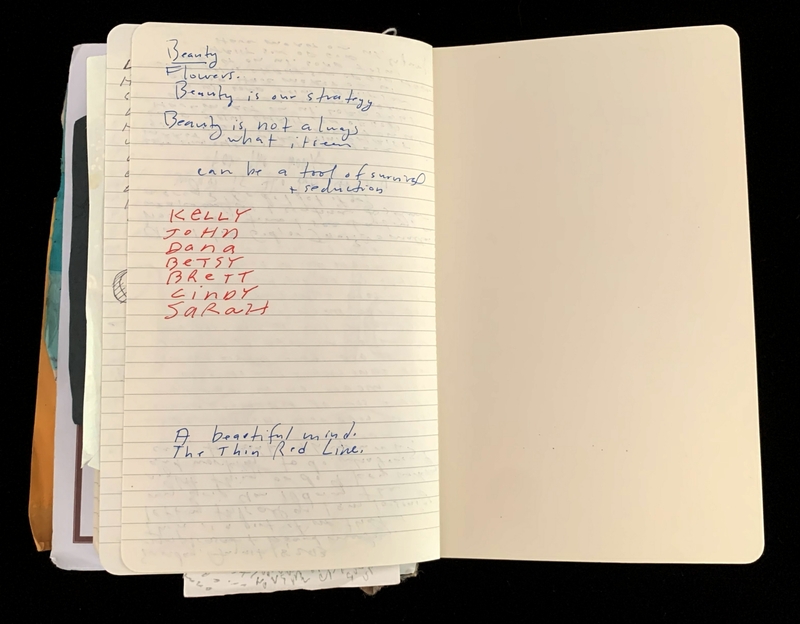 Beauty
Flowers.
Beauty is our strategy
Beauty is not always
what it seem
can be a tool of survival
+ seduction
KELLY
JOHN
Dana
BETSY
BRETT
CINDY
SARAH
A beautiful mind.
The Thin Red Line.